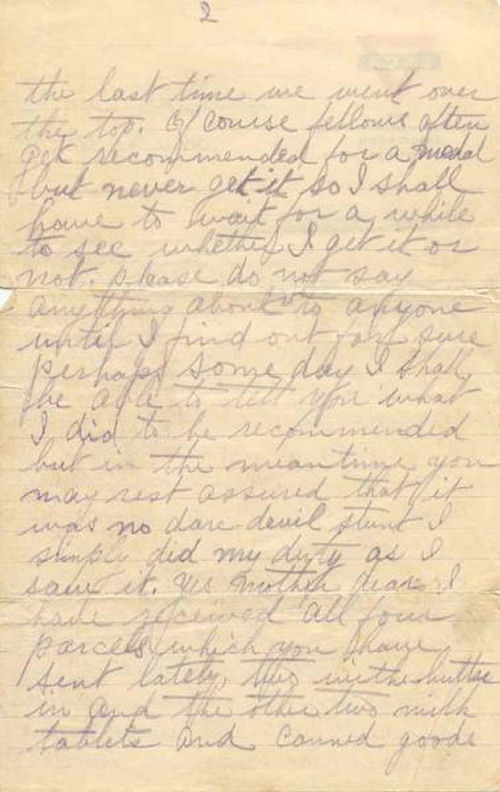 2
the last time we went over
the top. Of course fellows often
get recommended for a medal
but never get it so I shall
have to wait for a while
to see whether I get it or
not. please do not say
anything about it to anyone
until I find out for sure
perhaps some day I shall
be able to tell you what
I did to be recommended
but in the meantime you
may rest assured that it
was no dare devil stunt I
simply did my duty as I
saw it. Yes Mother dear I
have received all four
parcels which you have
sent lately, two with butter
in and the other two milk
tablets and canned goods